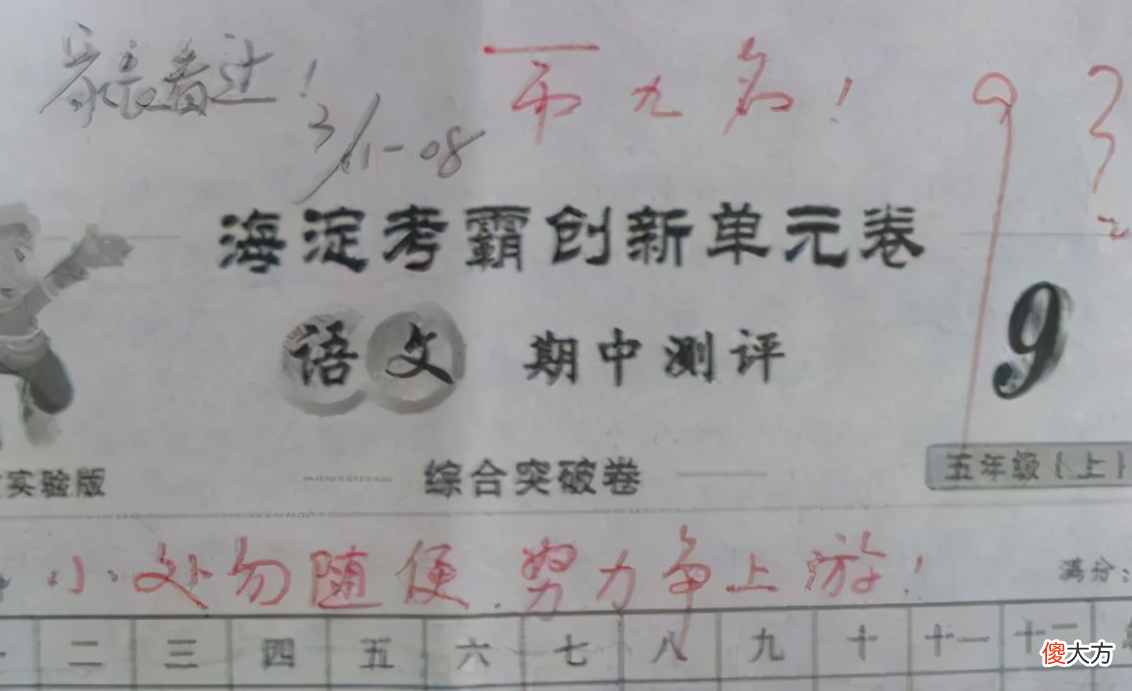 家长看过!
3/11-08
第九名!
93
海淀考霸创新单元卷
语文 期中测评
9
实验版
综合突破卷
五年级(上)
小处勿随便.努力争上游!
满分:
一 二 三 四 五 六 七 八 九 十 十一 十二
傻大方